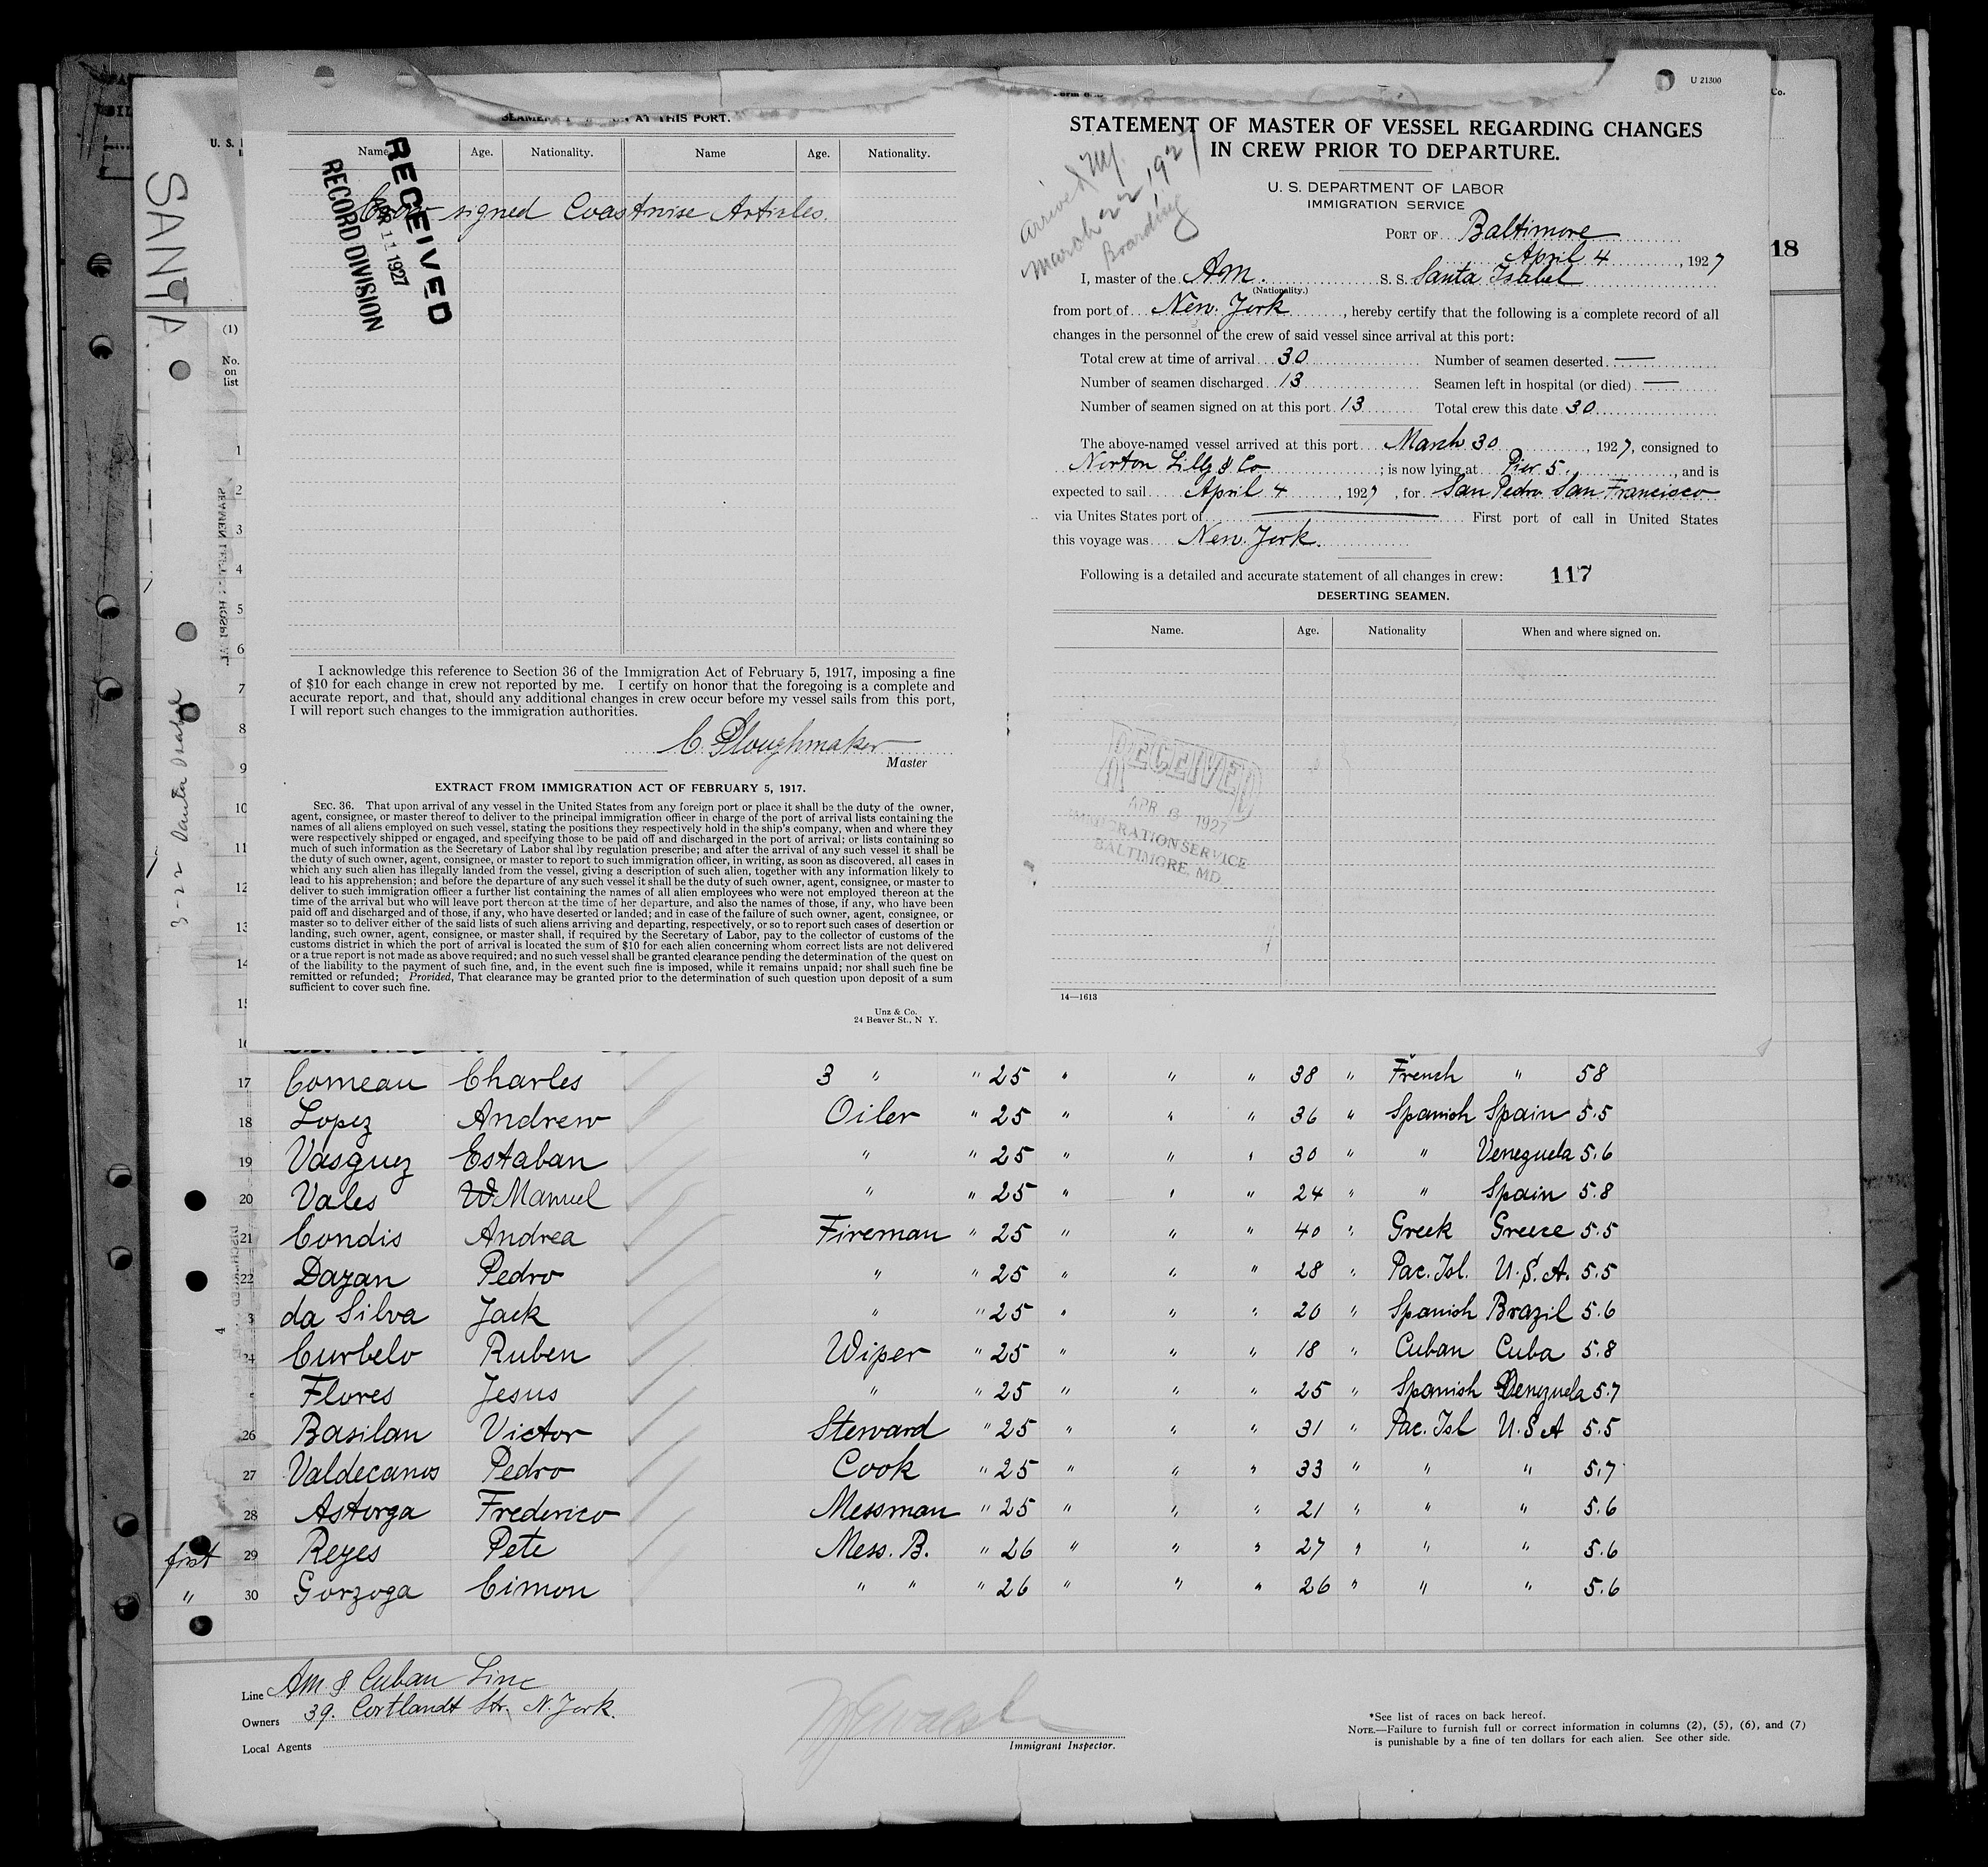 SANTA
3-22 Santa Isabel
U. S.
(1)
No.
on
list
AT THIS PORT.
Name Age. Nationality. Name Age. Nationality.
Crew signed Coastwise Articles.
RECEIVED
APR 11 1927
RECORD DIVISION
I acknowledge this reference to Section 36 of the Immigration Act of February 5, 1917, imposing a fine
of $10 for each change in crew not reported by me. I certify on honor that the foregoing is a complete and
accurate report, and that, should any additional changes in crew occur before my vessel sails from this port,
I will report such changes to the immigration authorities.
C. Ploughmaker
Master
EXTRACT FROM IMMIGRATION ACT OF FEBRUARY 5, 1917.
SEC. 36. That upon arrival of any vessel in the United States from any foreign port or place it shall be the duty of the owner,
agent, consignee, or master thereof to deliver to the principal immigration officer in charge of the port of arrival lists containing the
names of all aliens employed on such vessel, stating the positions they respectively hold in the ship's company, when and where they
were respectively shipped or engaged, and specifying those to be paid off and discharged in the port of arrival; or lists containing so
much of such information as the Secretary of Labor shal lby regulation prescribe; and after the arrival of any such vessel it shall be
the duty of such owner, agent, consignee, or master to report to such immigration officer, in writing, as soon as discovered, all cases in
which any such alien has illegally landed from the vessel, giving a description of such alien, together with any information likely to
lead to his apprehension; and before the departure of any such vessel it shall be the duty of such owner, agent, consignee, or master to
deliver to such immigration officer a further list containing the names of all alien employees who were not employed thereon at the
time of the arrival but who will leave port thereon at the time of her departure, and also the names of those, if any, who have been
paid off and discharged and of those, if any, who have deserted or landed; and in case of the failure of such owner, agent, consignee, or
master so to deliver either of the said lists of such aliens arriving and departing, respectively, or so to report such cases of desertion or
landing, such owner, agent, consignee, or master shall, if required by the Secretary of Labor, pay to the collector of customs of the
customs district in which the port of arrival is located the sum of $10 for each alien concerning whom correct lists are not delivered
or a true report is not made as above required; and no such vessel shall be granted clearance pending the determination of the quest on
of the liability to the payment of such fine, and, in the event such fine is imposed, while it remains unpaid; nor shall such fine be
remitted or refunded; Provided, That clearance may be granted prior to the determination of such question upon deposit of a sum
sufficient to cover such fine.
Unz & Co.
24 Beaver St., N Y.
U 21300
Co.
STATEMENT OF MASTER OF VESSEL REGARDING CHANGES
IN CREW PRIOR TO DEPARTURE.
arrived NY.
March 22 1927
Boarding
U. S. DEPARTMENT OF LABOR
IMMIGRATION SERVICE
PORT OF Baltimore
April 4, 1927
18
I, master of the Am. S. S. Santa Isabel
(Nationality.)
from port of New. York, hereby certify that the following is a complete record of all
changes in the personnel of the crew of said vessel since arrival at this port:
Total crew at time of arrival 30 Number of seamen deserted —
Number of seamen discharged 13 Seamen left in hospital (or died) —
Number of seamen signed on at this port 13 Total crew this date 30
The above-named vessel arrived at this port March 30, 1927, consigned to
Norton Lilly & Co; is now lying at Pier 5., and is
expected to sail April 4, 1927, for San Pedro San Francisco
via Unites States port of — First port of call in United States
this voyage was New. York.
Following is a detailed and accurate statement of all changes in crew: 117
DESERTING SEAMEN.
Name. Age. Nationality When and where signed on.
RECEIVED
APR 6 1927
IMMIGRATION SERVICE
BALTIMORE, MD.
14—1613
1
2
3
4
5
6
7
8
9
10
11
12
13
14
15
16
17 Comeau Charles 3 " " 25 " " " 38 " French " 58
18 Lopez Andrew Oiler " 25 " " " 36 " Spanish Spain 5.5
19 Vasquez Estaban " " 25 " " " 30 " " Venezuela 5.6
20 Vales Manuel " " 25 " " " 24 " " Spain 5.8
21 Condis Andrea Fireman " 25 " " " 40 " Greek Greece 5.5
22 Dazan Pedro " " 25 " " " 28 " Pac. Isl. U.S.A. 5.5
3 da Silva Jack " " 25 " " " 20 " Spanish Brazil 5.6
24 Curbelo Ruben Wiper " 25 " " " 18 " Cuban Cuba 5.8
5 Flores Jesus " " 25 " " " 25 " Spanish Venezuela 5.7
26 Basilan Victor Steward " 25 " " " 31 " Pac. Isl U.S.A 5.5
27 Valdecanos Pedro Cook " 25 " " " 33 " " " 5.7
28 Astorga Frederico Messman " 25 " " " 21 " " " 5.6
first 29 Reyes Pete Mess. B. " 26 " " " 27 " " " 5.6
" 30 Gorzoga Cimon " " " 26 " " " 26 " " " 5.6
Line Am & Cuban Line
Owners 39. Cortlandt Str. N. York.
Local Agents
Immigrant Inspector.
*See list of races on back hereof.
NOTE.—Failure to furnish full or correct information in columns (2), (5), (6), and (7)
is punishable by a fine of ten dollars for each alien. See other side.